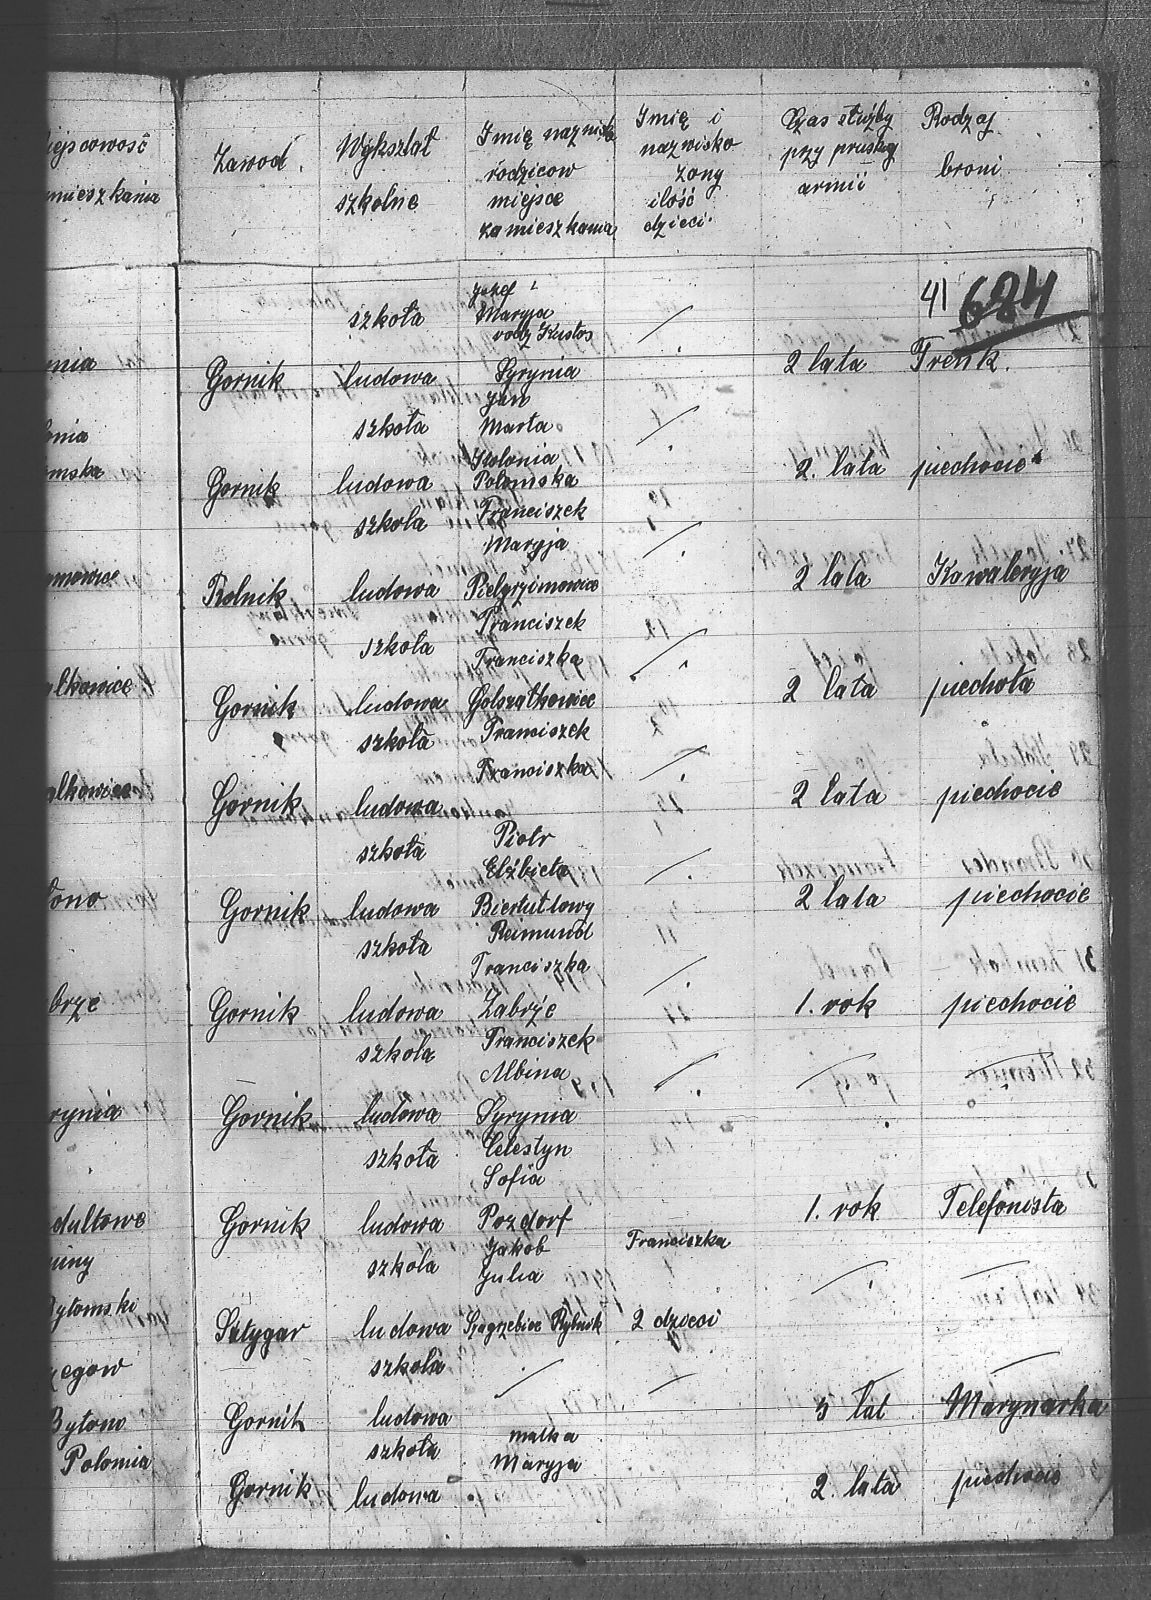 Zawod. Wykształ Imię nazwisko Imię i Czas służby Rodzaj
miejscowość szkolne rodzicow nazwisko przy pruskiej broni
zamieszkania miejsce żony armii
zamieszkania ilość
dzieci.
41 624
szkoła Jozef i
Maryja
rodz Kustos
nia Gornik ludowa Syrynia 2 lata Trenk.
Jan
szkoła Marta
onia Kolonia
omska Gornik ludowa Połomska 2. lata piechocie
szkoła Franciszek
Maryja
ymowice Rolnik ludowa Pielgrzimowice 2 lata Kawaleryja
Franciszek
szkoła Franciszka
alkowice Gornik ludowa Gołszałkowice 2 lata piechota
szkoła Franciszek
Franciszka
alkowice Gornik ludowa 2 lata piechocie
Piotr
szkoła Elżbieta
tono Gornik ludowa Biertułtowy 2 lata piechocie
szkoła Reimund
Franciszka
brze Gornik ludowa Zabrże 1. rok piechocie
szkoła Franciszek
Albina
rynia Gornik ludowa Syrynia
szkoła Celestyn
Sofia
dułtowe Gornik ludowa Pozdorf 1. rok Telefonista
Jakob Franciszka
miny szkoła Julia
Bytomski Sztygar ludowa Szegrzebice Rybnik 2 dzieci
zegow szkoła
Bytom Gornik ludowa 5 lat Marynarka
szkoła matka
Polomia Maryja
Gornik ludowa 2. lata piechocie